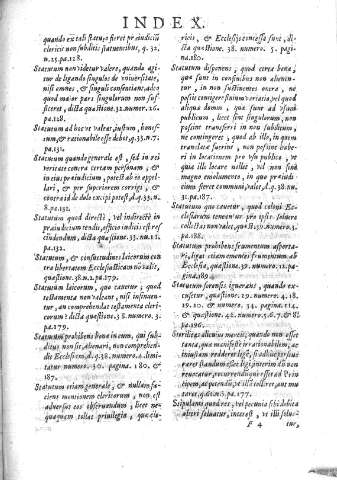 INDEX.
quando ex tali statuto fieret præiudiciũ
clericis non subditis statuentibus, q. 32.
n. 25. pa. 128.
Statutum non videtur valere, quando agi-
tur de ligando singulos de vniuersitate,
nisi omnes, & singuli consentiant, adeo
quod maior pars singulorum non suf-
ficeret, dicta quæstione. 32. numero. 26.
pa. 128.
Statutum ad hoc vt valeat, iustum, hone-
stum, & rationabile esse debet, q. 33. n. 7.
pa. 131.
Statutum quando generale est, sed in rei
veritate contra certam personam, &
in eius præiudicium, poteit ab eo appel-
lari, & per superiorem corrigi, &
contra id de dolo excipi potest, q. 33. n.
8. pa. 132.
Statutum quod directè, vel indirectè in
præiudicium tendit, effectio indici est re-
scindendum, dicta quæstione. 33. nu. 12.
pa. 132.
Statutum, & consuetudines laicorum con
tra libertatem Ecclesiasticam nõ valēt,
quæstione. 38. n. 2. pa. 179.
Statutum laicorum, quo cauetur, quod
testamenta non valeant, nisi insinuen-
tur, an comprehendat testamenta cleri-
corum? dicta quæstione. 38. numero. 3.
pa. 179.
Statutum prohibens bona in eum, qui sub-
ditus non sit, alienari, non comprehen-
dit Ecclesiam, d. q. 38. numero. 4. limi-
tatur numero. 30. pagina. 180. &
187.
Statutum etiam generale, & nullam fa-
ciens mentionem clericorum, non est
aduersus eos obseruandum, licet ne-
quaquam tollat priuilegia, quæ cle-
ricis, & Ecclesijs concessa sunt, di-
cta quæstione. 38. numero. 5. pagi-
na. 180.
Statutum disponens, quod certa bona,
quæ sunt in confinibus non alienen-
tur, in non sustinentes onera, ne
possit contingere statim variatio, vel quod
aliqua domus, quæ sunt ad vsum
publicum, licet sint singulorum, non
possint transferri in non subditum,
& contingente, quod ab illis, in quem
translatæ fuerint, non possint habe-
ri in locationem pro vsu publico, ve
quia ille vellet locare, vel non sine
magno emolumento, in quo præiudi-
cium fieret communi, valet, d. q. 38. nu.
31. pa. 187.
Statutum quo cauetur, quod coloni Ec-
clesiarum teneantur pro ipsis soluere
collectas non valet, quæst. 39. numero. 3.
pa. 188.
Statutum prohibens frumentum asporta-
ri, ligat etiam ementes frumentum ab
Ecclesia, quæstione. 39. numero. 12. pa-
gina 189.
Statutum forensis ignorans, quando ex-
cusetur, quæstione. 29. numero. 4. 18.
19. 20. 10. & numero. 34. pagina. 114.
& quæstione. 42. numero. 5. 6. 7. & 8?
pa. 196.
Sterilitas alicuius mercis, quando non esset
tanta, quo manifestè irrationabilem, ac
iniustam redderet legē, si adhuc per su-
biectos esset eius legi, interim dõ non
reuocatur, recurrendumque est ad Prin
cipem, ac petendū, vt illa tolleret, aut mu
taret, quæstione. 35. pa. 177.
Stipulans quod res, vel pecunia sibi debita
alteri soluatur, interest, vt illi solua-
F 4 tur,